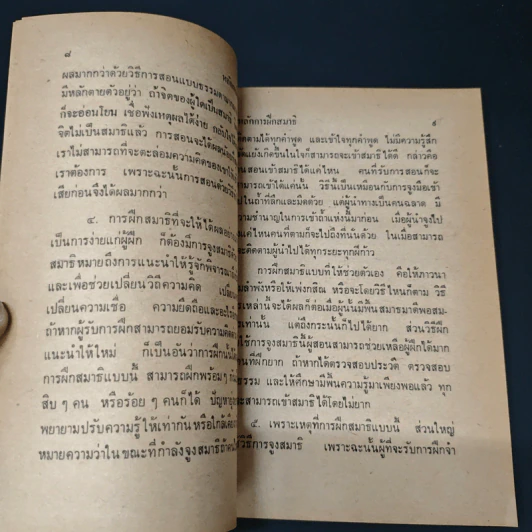 ๘
ผลมากกว่าด้วยวิธีการสอนแบบธรรมดา
มีหลักตายตัวอยู่ว่า ถ้าจิตของผู้ใดเป็นสมาธิ
ก็จะอ่อนโยน เชื่อฟังเหตุผลได้ง่าย
จิตไม่เป็นสมาธิแล้ว การสอนจะได้ผล
เราไม่สามารถที่จะตะล่อมความคิดของเขาให้
เราต้องการ เพราะฉะนั้นการสอนด้วยวิธี
เสียก่อนจึงได้ผลมากกว่า
๔. การฝึกสมาธิที่จะให้ได้ผลอย่าง
เป็นการง่ายแก่ผู้ฝึก ก็ต้องมีการจูงสมาธิ
สมาธิหมายถึงการแนะนำให้รู้จักพิจารณา
และเพื่อช่วยเปลี่ยนวิถีความคิด
เปลี่ยนความเชื่อ ความยึดถือและอะไร
ถ้าหากผู้รับการฝึกสามารถยอมรับความคิด
แนะนำให้ใหม่ ก็เป็นอันว่าการฝึกนั้น
การฝึกสมาธิแบบนี้ สามารถฝึกพร้อมๆ กัน
สิบๆ คน หรือร้อยๆ คนก็ได้ ปัญหา
พยายามปรับความรู้ให้เท่ากัน หรือใกล้เคียง
หมายความว่าในขณะที่กำลังจูงสมาธิ
หลักการฝึกสมาธิ
๙
ติดตามได้ทุกคำพูด และเข้าใจทุกคำพูด ไม่มีความรู้สึก
ขัดแย้งเกิดขึ้นในใจก็สามารถจะเข้าสมาธิได้ดี กล่าวคือ
สอนเข้าสมาธิได้แค่ไหน คนที่รับการสอนก็จะ
สามารถเข้าได้แค่นั้น วิธีนี้เป็นเหมือนกับการจูงมือเข้า
ไปในถ้ำที่ลึกและมืดด้วย แต่ผู้นำทางเป็นคนฉลาด มี
ความชำนาญในการเข้าถ้ำแห่งนี้มาก่อน เมื่อผู้นำจูงไป
แค่ไหนคนที่ตามก็จะไปถึงที่นั่นด้วย ในเมื่อสามารถ
จะติดตามผู้นำไปได้ทุกระยะทุกฝีก้าว
การฝึกสมาธิแบบที่ให้ช่วยตัวเอง คือให้ภาวนา
ลำพังหรือให้เพ่งกสิณ หรือจะโดยวิธีไหนก็ตาม วิธี
เหล่านั้นจะได้ผลก็ต่อเมื่อผู้นั้นมีพื้นสมาธิมาดีพอสม-
เท่านั้น แต่ถึงกระนั้นก็ไปได้ยาก ส่วนวิธีฝึก
ใช้การจูงสมาธินี้ผู้สอนสามารถช่วยเหลือผู้ฝึกได้มาก
คนที่ฝึกยาก ถ้าหากได้ตรวจสอบประวัติ ตรวจสอบ
ธรรม และให้ศึกษามีพื้นความรู้มาเพียงพอแล้ว ทุก
จะสามารถเข้าสมาธิได้โดยไม่ยาก
๕. เพราะเหตุที่การฝึกสมาธิแบบนี้ ส่วนใหญ่
วิธีการจูงสมาธิ เพราะฉะนั้นผู้ที่จะรับการฝึกจำ